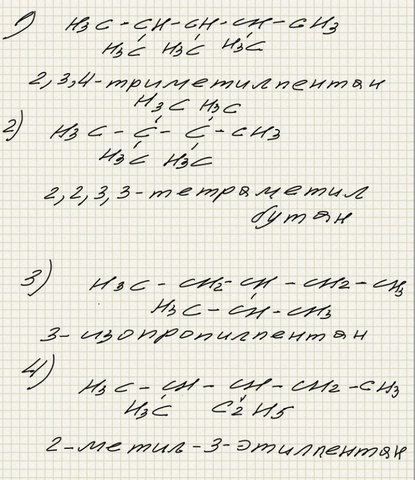 1) H3C - CH - CH - CH - CH3
H3C H3C H3C
2,3,4-триметилпентан
H3C H3C
2) H3C - C - C - CH3
H3C H3C
2,2,3,3-тетраметил
бутан
3) H3C - CH2 - CH - CH2 - CH3
H3C - CH - CH3
3-изопропилпентан
4) H3C - CH - CH - CH2 - CH3
H3C C2H5
2-метил-3-этилпентан